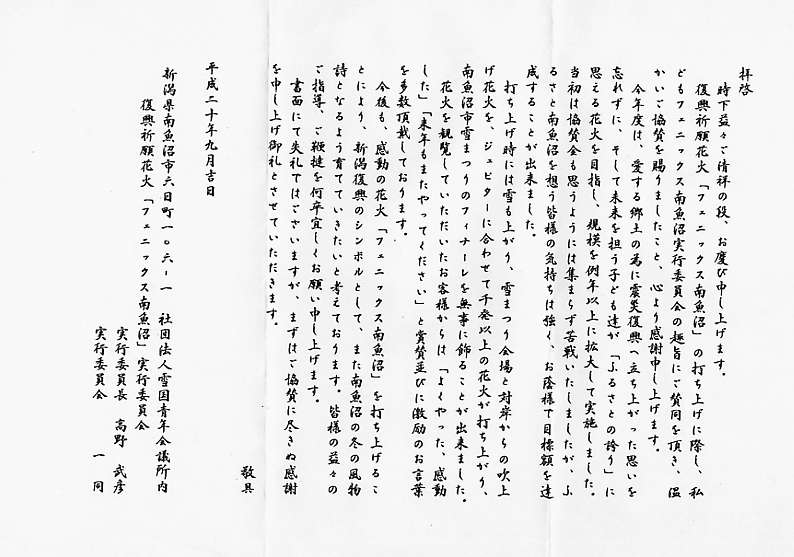 拝啓
時下益々ご清祥の段、お慶び申し上げます。
復興祈願花火「フェニックス南魚沼」の打ち上げに際し、私
どもフェニックス南魚沼実行委員会の趣旨にご賛同を頂き、温
かいご協賛を賜りましたこと、心より感謝申し上げます。
今年度は、愛する郷土の為に震災復興へ立ち上がった思いを
忘れずに、そして未来を担う子ども達が「ふるさとの誇り」に
思える花火を目指し、規模を例年以上に拡大して実施しました。
当初は協賛金も思うようには集まらず苦戦いたしましたが、ふ
るさと南魚沼を想う皆様の気持ちは強く、お蔭様で目標額を達
成することが出来ました。
打ち上げ時には雪も上がり、雪まつり会場と対岸からの吹上
げ花火を、ジュピターに合わせて千発以上の花火が打ち上がり、
南魚沼市雪まつりのフィナーレを無事に飾ることが出来ました。
花火を観覧していただいたお客様からは「よくやった、感動
した」「来年もまたやってください」と賞賛並びに激励のお言葉
を多数頂戴しております。
今後も、感動の花火「フェニックス南魚沼」を打ち上げるこ
とにより、新潟復興のシンボルとして、また南魚沼の冬の風物
詩となるよう育てていきたいと考えております。皆様の益々の
ご指導、ご鞭撻を何卒宜しくお願い申し上げます。
書面にて失礼ではございますが、まずはご協賛に尽きぬ感謝
を申し上げ御礼とさせていただきます。
敬具
平成二十年九月吉日
新潟県南魚沼市六日町一〇六-一 社団法人雪国青年会議所内
復興祈願花火「フェニックス南魚沼」実行委員会
実行委員長 高野 武彦
実行委員会 一同